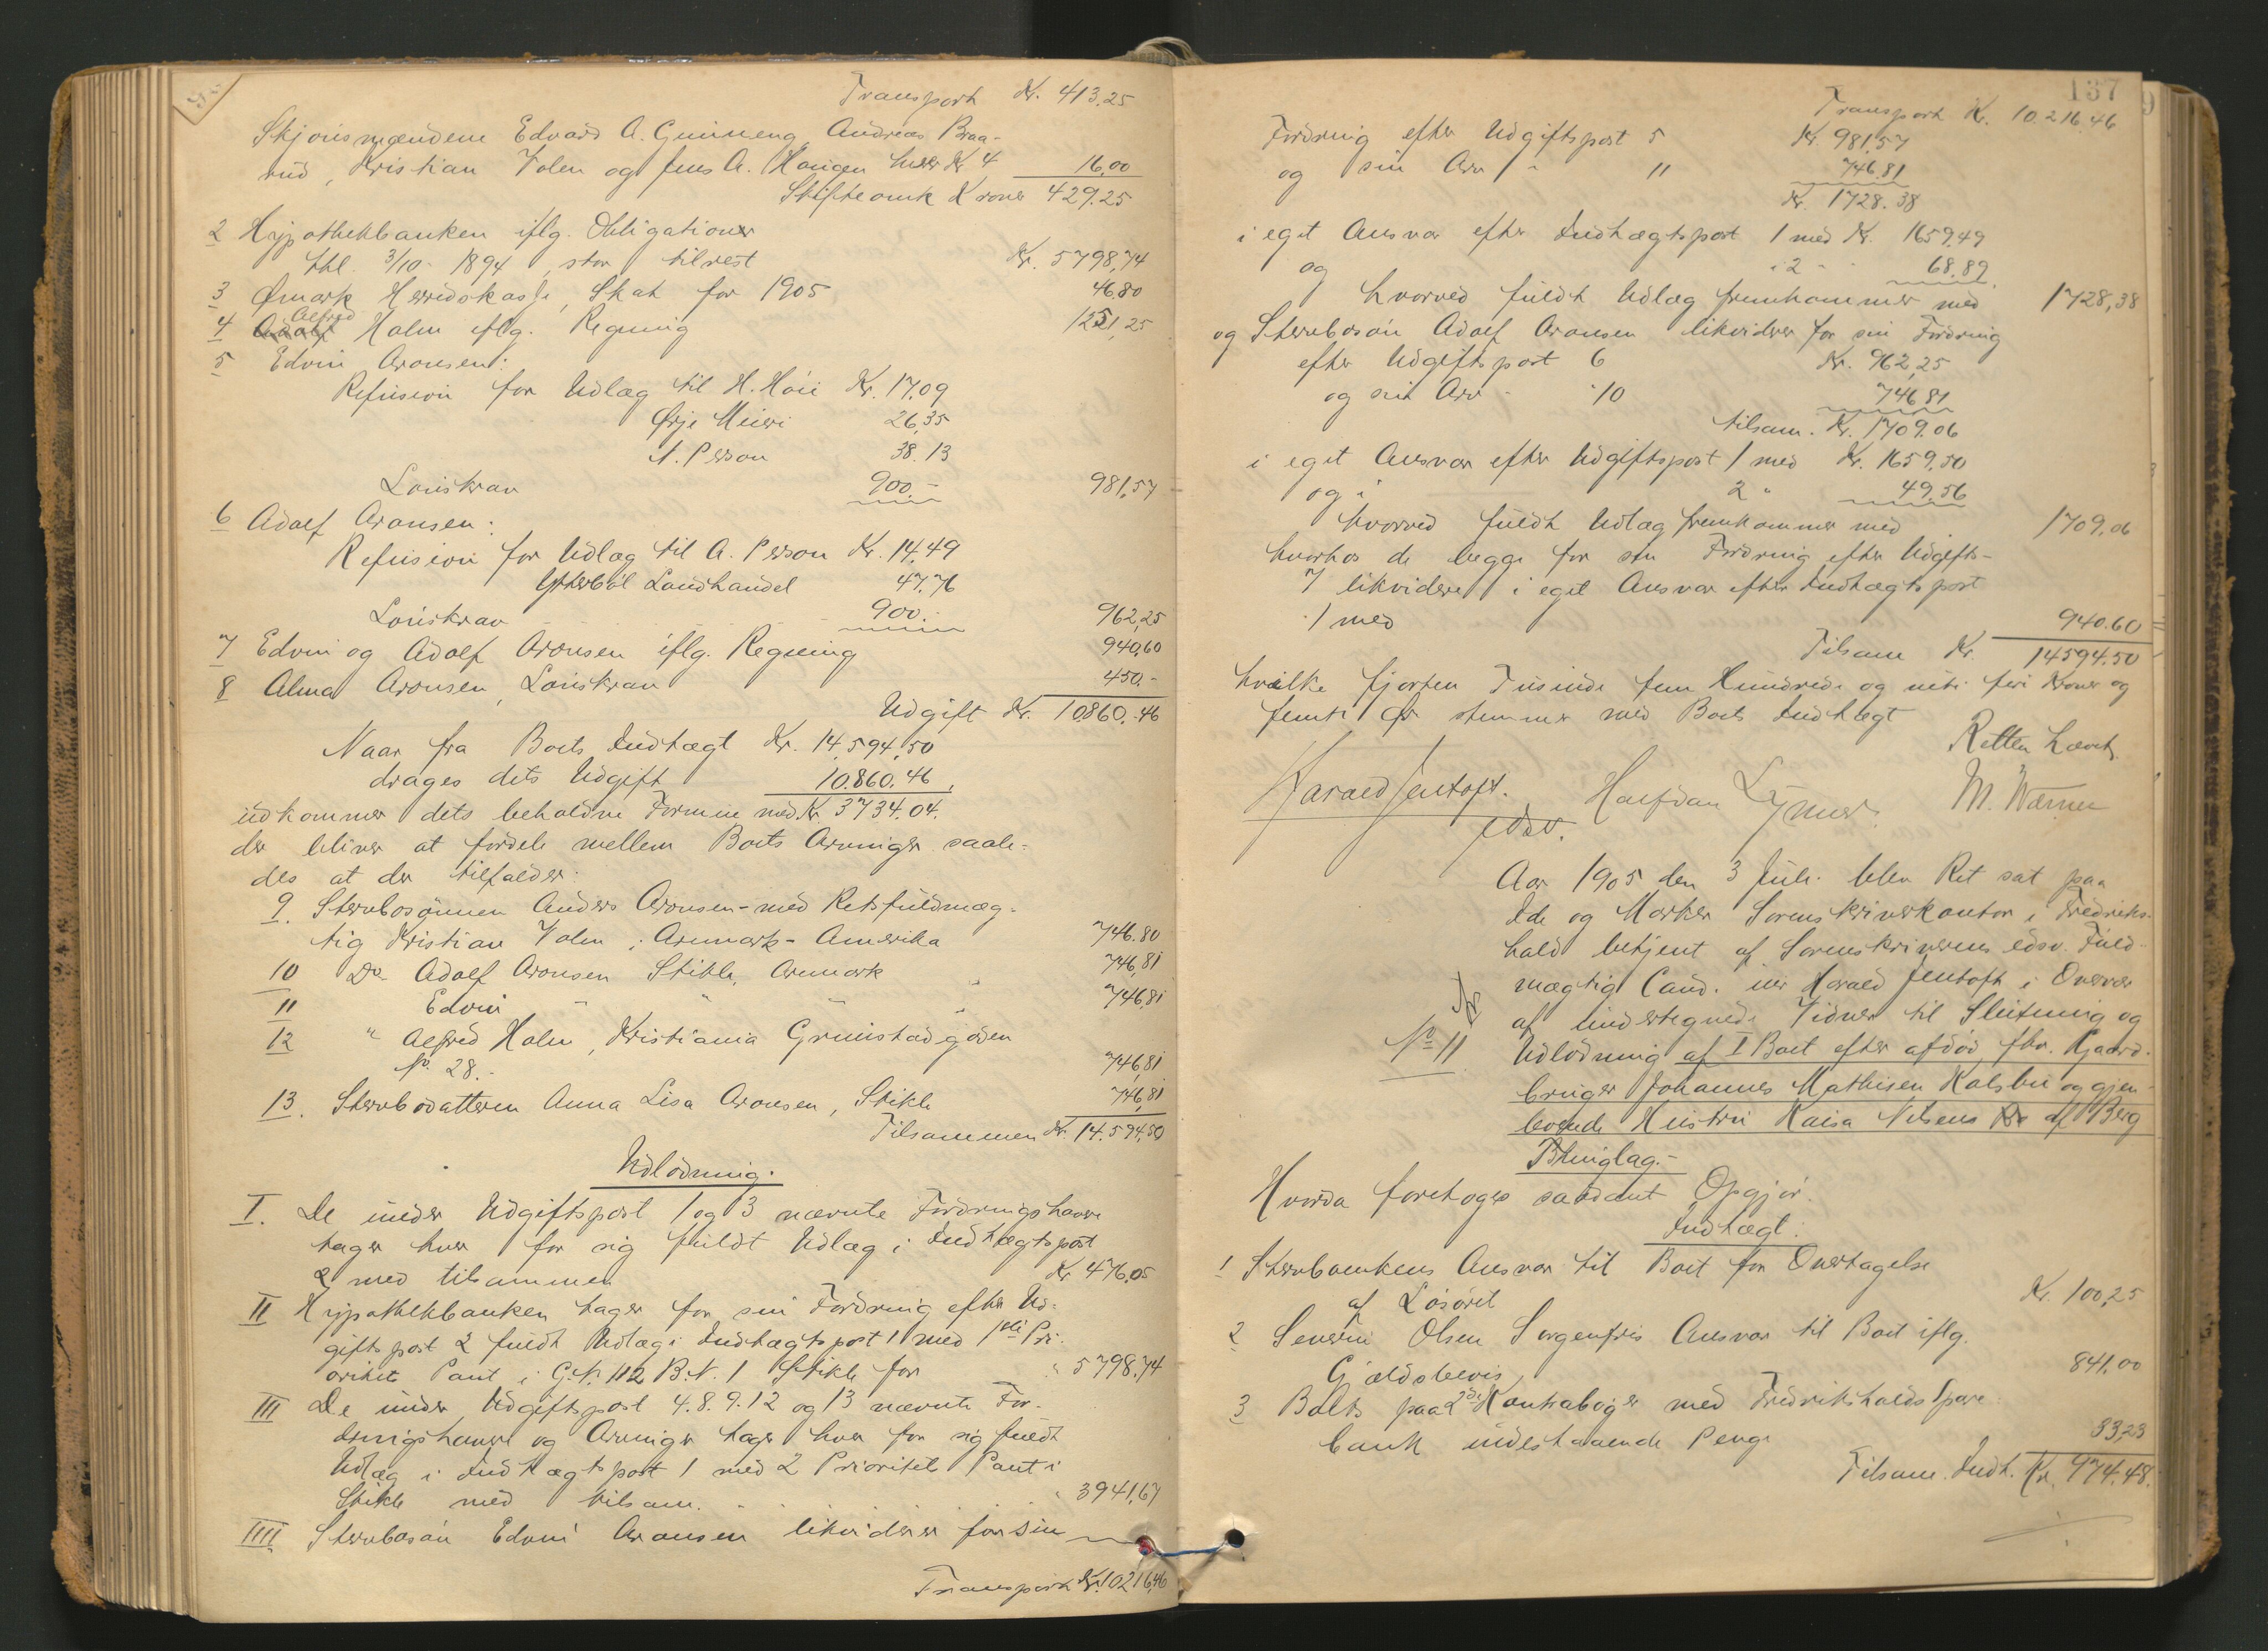 Transport Kr. 413.25
Skjönsmændene Edvard A. Gunneng, Andreas Braa-
rud, Kristian Volen og Jens A. Haugen hver Kr 4 16,00
Skifteomk Kroner 429.25
2 Hypothekbanken iflg. Obligationer
thl. 3/10 1894, stor tilrest Kr. 5798,74
3 Ømark Herredskasse, Skat for 1905 46.80
4 Alfred Holm iflg. Regning 1251,25
5 Edvin Aronsen:
Refusion for Udlæg til H. Höie Kr. 17,09
Ørje Meieri 26,35
A. Person 38.13
Lönskrav 900.- 981,57
6 Adolf Aronsen:
Refusion for Udlæg til A. Person Kr. 14,49
Ytterböl Landhandel 47.76
Lönskrav 900.- 962,25
7 Edvin og Adolf Aronsen iflg. Regning 940,60
8 Alma Aronsen, Lönskrav 450.-
Udgift Kr. 10860.46
Naar fra Boets Indtægt Kr. 14,594,50
drages dets Udgift 10.860.46
udkommer dets beholdne Formue med Kr. 3734.04.
der bliver at fordele mellem Boets Arvinger saale-
des at der tilfalder:
9. Stervbosönnen Anders Aronsen - med Retsfuldmæg-
tig Kristian Volen i Aremark - Amerika 746.80
10 Do Adolf Aronsen Stikle, Aremark 746,81
11 Edvin " " 746,81
12 " Alfred Holm, Kristiania Grimstadgaden
No 28.- 746,81
13. Stervbodatteren Anna Lisa Aronsen, Stikle 746,81
Tilsammen Kr. 14.594,50
Udlodning.
I. De under Udgiftspost 1 og 3 nævnte Fordringshavere
tager hver for sig fuldt Udlæg i Indtægtspost
2 med tilsammen Kr 476,05
II Hypothekbanken tager for sin Fordring efter Ud-
giftspost 2 fuldt Udlæg i Indtægtspost 1 med 1ste Pri-
oritet Pant i G.N. 112 B.N. 1 Stikle for " 5798.74
III De under Udgiftspost 4.8.9.12 og 13 nævnte For-
dringshavere og Arvinger tager hver for sig fuldt
Udlæg i Indtægtspost 1 med 2 Prioritets Pant i
Stikle med tilsam. 3941,67
IIII Stervbosön Edvin Aronsen likviderer for sin
Transport Kr. 10216,46
137
Transport Kr. 10.216.46
Fordring efter Udgiftspost 5 Kr. 981,57
og sin Arv " 11 746.81
Kr. 1728.38
i eget Ansvar efter Indtægtspost 1 med Kr. 1659,49
og i 2 " 68,89
hvorved fuldt Udlæg fremkommer med 1728,38
og Stervbosön Adolf Aronsen likviderer for sin Fordring
efter Udgiftspost 6 Kr. 962,25
og sin Arv " 10 746.81
tilsam. Kr. 1709.06
i eget Ansvar efter Udgiftspost 1 med Kr. 1659,50
og i 2 " 49.56
hvorved fuldt Udlæg fremkommer med 1709,06
hvorhos de begge for sin Fordring efter Udgifts-
7 likviderer i eget Ansvar efter Indtægtspost
1 med 940.60
Tilsam Kr. 14594.50
hvilke fjorten Tusinde fem Hundrede og niti fire Kroner og
femti Ör stemmer med Boets Indtægt
Retten hævet.
Harald Jentoft. edsv. Halfdan Lymer. M. Warner
Aar 1905 den 3 Juli blev Ret sat paa
Ide og Marker Sorenskriverkontor i Fredriks-
hald betjent af Sorenskriverens edsv. Fuld-
mægtig Cand. jur Harald Jentoft i Overvær
af undertegnede Vidner til Slutning og
No 11 Udlodning af I Boet efter afdöd fhv. Gaard-
bruger Johannes Mathisen Kalsbu og gjen-
levende Hustru Kaisa Nilsens af Berg
Thinglag.-
Hvorda foretoges saadant Opgjör.
Indtægt:
1 Stervboenkens Ansvar til Boet for Overtagelse
af Lösöret Kr. 100,25
2 Severin Olsen Sorgenfris Ansvar til Boet iflg.
Gjældsbevis 841,00
3 Boets paa 2de Kontrabøger med Fredrikshalds Spare-
bank indestaaende Penge 33,23
Tilsam. Indt. Kr. 974.48.